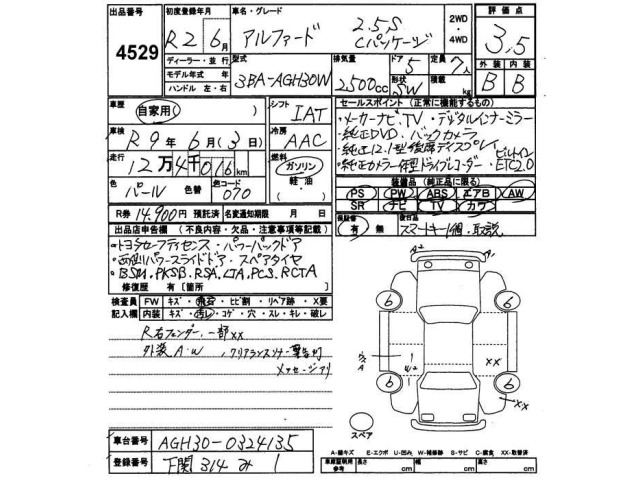 出品番号 4529
初度登録年月 R2年6月
車名・グレード アルファード 2.5S Cパッケージ
2WD・4WD
評価点 3.5
外装 B 内装 B
ディーラー・並行
モデル年式 年
ハンドル 左・右
型式 3BA-AGH30W
排気量 2500cc
ドア 5
形状 SW
定員 7人
積載 kg
車歴 自家用 ( )
シフト IAT
車検 R 9年 6月 ( 3日 )
冷房 AAC
走行 12万4千016km
燃料 ガソリン 軽油・
色 パール 色替
色コード 070
セールスポイント (正常に機能するもの)
・メーカーナビ、TV・デジタルインナーミラー
・純正DVD、バックカメラ
・純正12.1型後席ディスプレイ
・純正カメラ一体型ドライブレコーダー・ビルトインETC2.0
装備品 (純正品に限る)
PS PW ABS エアB AW
SR ナビ TV カワ
R券 14,900円 預託済 名変通知期限 月 日
保証書 有 無
後日品 スマートキー1個、取説
出品店申告欄 (不良内容・欠品・注意事項等記載)
・トヨタセーフティセンス・パワーバックドア
・両側パワースライドドア・スペアタイヤ
・BSM、PKSB、RSA、LTA、PCS、RCTA
修復歴 有 [ 箇所 ]
検査員記入欄
FW キズ・飛石・ヒビ割・リペア跡・X要
内装 キズ・汚レ・コゲ・穴・スレ・キレ・破レ
R右フェンダー、一部XX
外装A・W、クリアランスソナー警告灯
メッセージアリ
A2
A2
6
6
6
6
XX
XX
A
スペア
車台番号 AGH30-0324135
登録番号 下関 314 み 1
A-線キズ E-エクボ U-凹み W-補修跡 S-サビ C-腐食 XX-取替済
車庫証明用参考 長さ cm 幅 cm 高さ cm